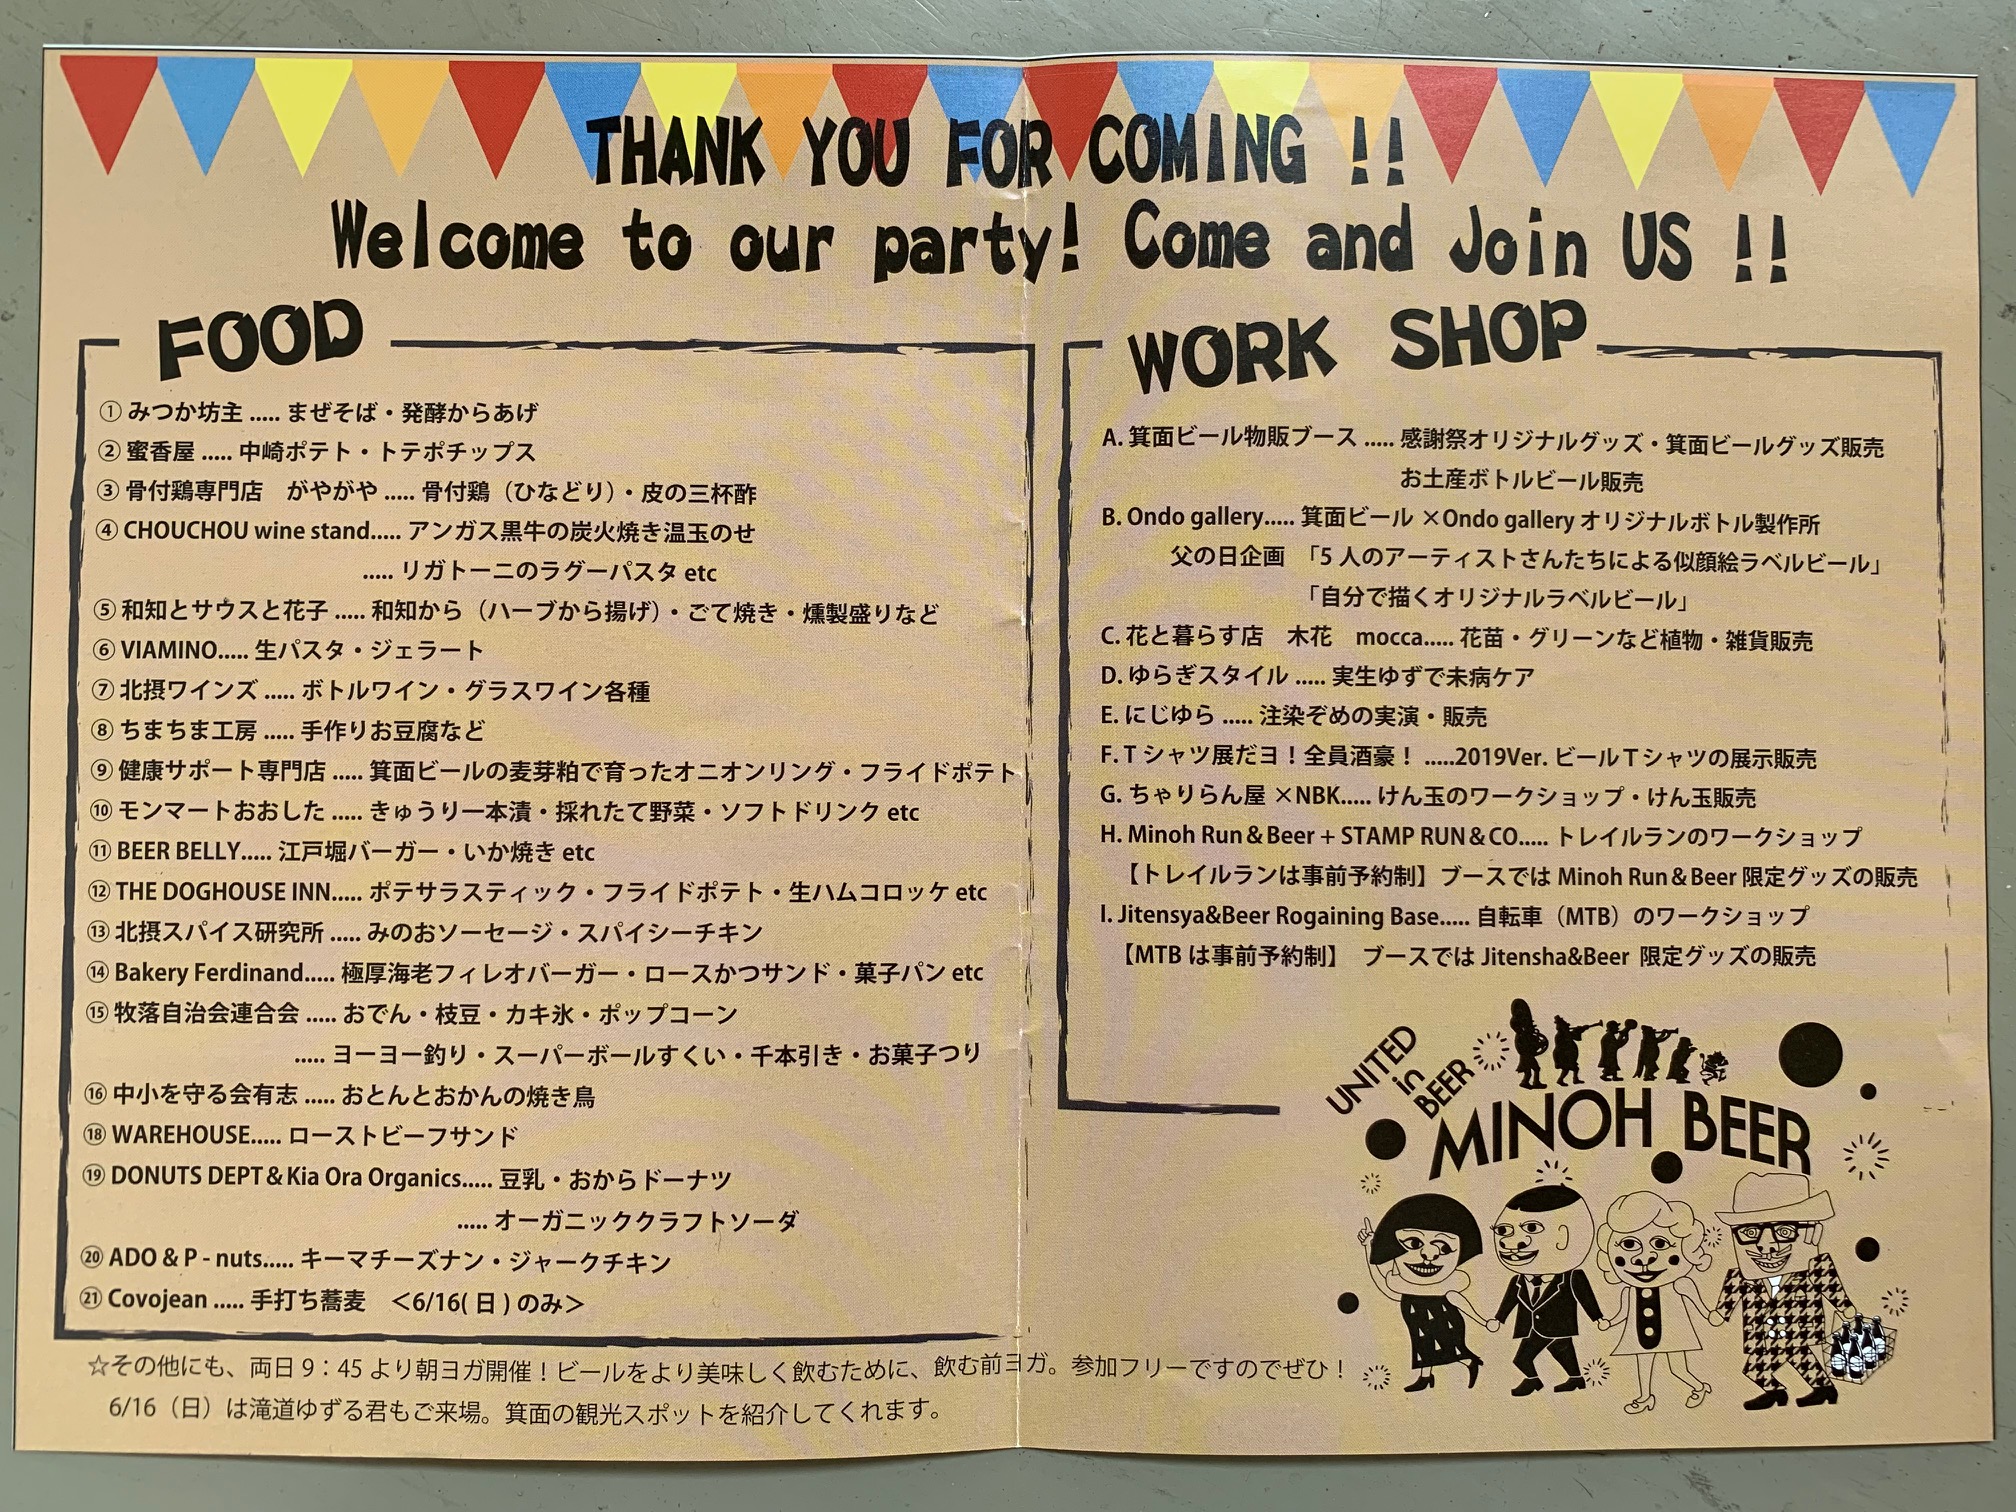 THANK YOU FOR COMING !!
Welcome to our party! Come and Join US !!
FOOD
① みつか坊主 ..... まぜそば・発酵からあげ
② 蜜香屋 ..... 中崎ポテト・トテポチップス
③ 骨付鶏専門店　がやがや ..... 骨付鶏（ひなどり）・皮の三杯酢
④ CHOUCHOU wine stand..... アンガス黒牛の炭火焼き温玉のせ
..... リガトーニのラグーパスタ etc
⑤ 和知とサウスと花子 ..... 和知から（ハーブから揚げ）・ごて焼き・燻製盛りなど
⑥ VIAMINO..... 生パスタ・ジェラート
⑦ 北摂ワインズ ..... ボトルワイン・グラスワイン各種
⑧ ちまちま工房 ..... 手作りお豆腐など
⑨ 健康サポート専門店 ..... 箕面ビールの麦芽粕で育ったオニオンリング・フライドポテト
⑩ モンマートおおした ..... きゅうり一本漬・採れたて野菜・ソフトドリンク etc
⑪ BEER BELLY..... 江戸堀バーガー・いか焼き etc
⑫ THE DOGHOUSE INN..... ポテサラスティック・フライドポテト・生ハムコロッケ etc
⑬ 北摂スパイス研究所 ..... みのおソーセージ・スパイシーチキン
⑭ Bakery Ferdinand..... 極厚海老フィレオバーガー・ロースかつサンド・菓子パン etc
⑮ 牧落自治会連合会 ..... おでん・枝豆・カキ氷・ポップコーン
..... ヨーヨー釣り・スーパーボールすくい・千本引き・お菓子つり
⑯ 中小を守る会有志 ..... おとんとおかんの焼き鳥
⑱ WAREHOUSE..... ローストビーフサンド
⑲ DONUTS DEPT＆Kia Ora Organics..... 豆乳・おからドーナツ
..... オーガニッククラフトソーダ
⑳ ADO & P - nuts..... キーマチーズナン・ジャークチキン
㉑ Covojean ..... 手打ち蕎麦　＜6/16( 日 ) のみ＞
WORK SHOP
A. 箕面ビール物販ブース ..... 感謝祭オリジナルグッズ・箕面ビールグッズ販売
お土産ボトルビール販売
B. Ondo gallery..... 箕面ビール ×Ondo gallery オリジナルボトル製作所
父の日企画　「5 人のアーティストさんたちによる似顔絵ラベルビール」
「自分で描くオリジナルラベルビール」
C. 花と暮らす店　木花　mocca..... 花苗・グリーンなど植物・雑貨販売
D. ゆらぎスタイル ..... 実生ゆずで未病ケア
E. にじゆら ..... 注染ぞめの実演・販売
F. T シャツ展だヨ！全員酒豪！ .....2019Ver. ビールTシャツの展示販売
G. ちゃりらん屋 ×NBK..... けん玉のワークショップ・けん玉販売
H. Minoh Run＆Beer + STAMP RUN＆CO..... トレイルランのワークショップ
【トレイルランは事前予約制】ブースでは Minoh Run＆Beer 限定グッズの販売
I. Jitensya&Beer Rogaining Base..... 自転車（MTB）のワークショップ
【MTB は事前予約制】　ブースでは Jitensha&Beer 限定グッズの販売
UNITED
in
BEER
MINOH BEER
☆その他にも、両日 9：45 より朝ヨガ開催！ビールをより美味しく飲むために、飲む前ヨガ。参加フリーですのでぜひ！
6/16（日）は滝道ゆずる君もご来場。箕面の観光スポットを紹介してくれます。